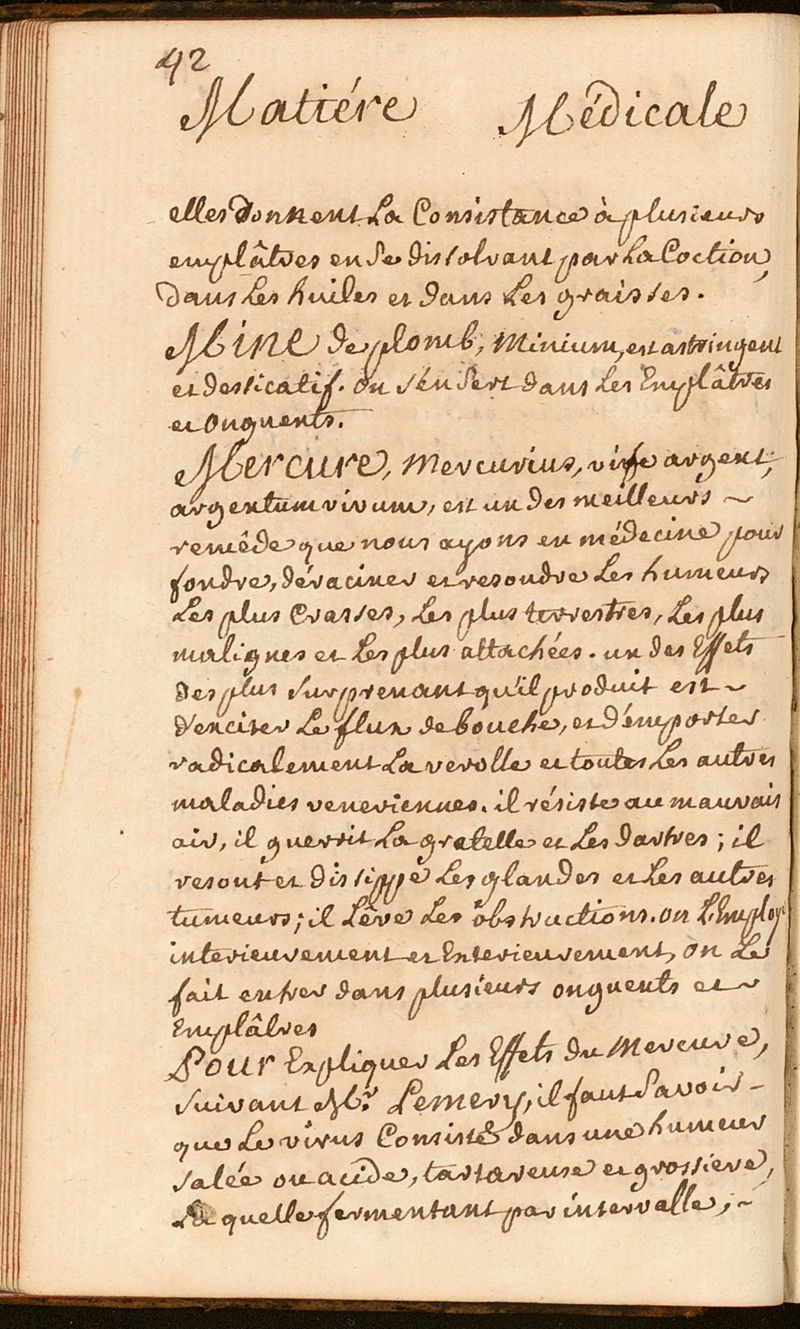 42
Matiére Médicale
elles donnent La Consistance à plusieurs
emplâtres en Se dissolvant par La Coction,
Dans Les huiles et dans Les graisses.
Mine de plomb, Minium, est astringent
et dessicatif. on s'en Sert dans Les Emplâtres
et Onguents.
Mercure, Mercurius, vife argent,
argentum vivum, est un des meilleurs ~
remêde que nous ayons en médecine pour
fondre, déraciner et resoudre Les humeurs
Les plus Crasses, Les plus terrestres, Les plus
malignes et Les plus attachées. un des Effets
des plus Surprenant qu'il produit est ~
d'exciter Le flux de bouche, et d'emporter
radicalement La verolle et toutes Les autres
maladies veneriennes. il résiste au mauvais
air, il guerrit La gratelle et Les dartres ; il
resout et dissippe Les glandes et Les autres
tumeurs ; il Lêve Les obstructions. on L'Employe
interieurement et Exterieurement, on Le
fait entrer dans plusieurs onguents et ~
Emplâtres
Pour Expliquer Les Effets du Mercure,
suivant Mr. Lemery, il faut Savoir -
que Le virus Consiste dans une humeur
salée ou acide, tartareuse et grossiere,
La quelle fermentant par intervalle, ~